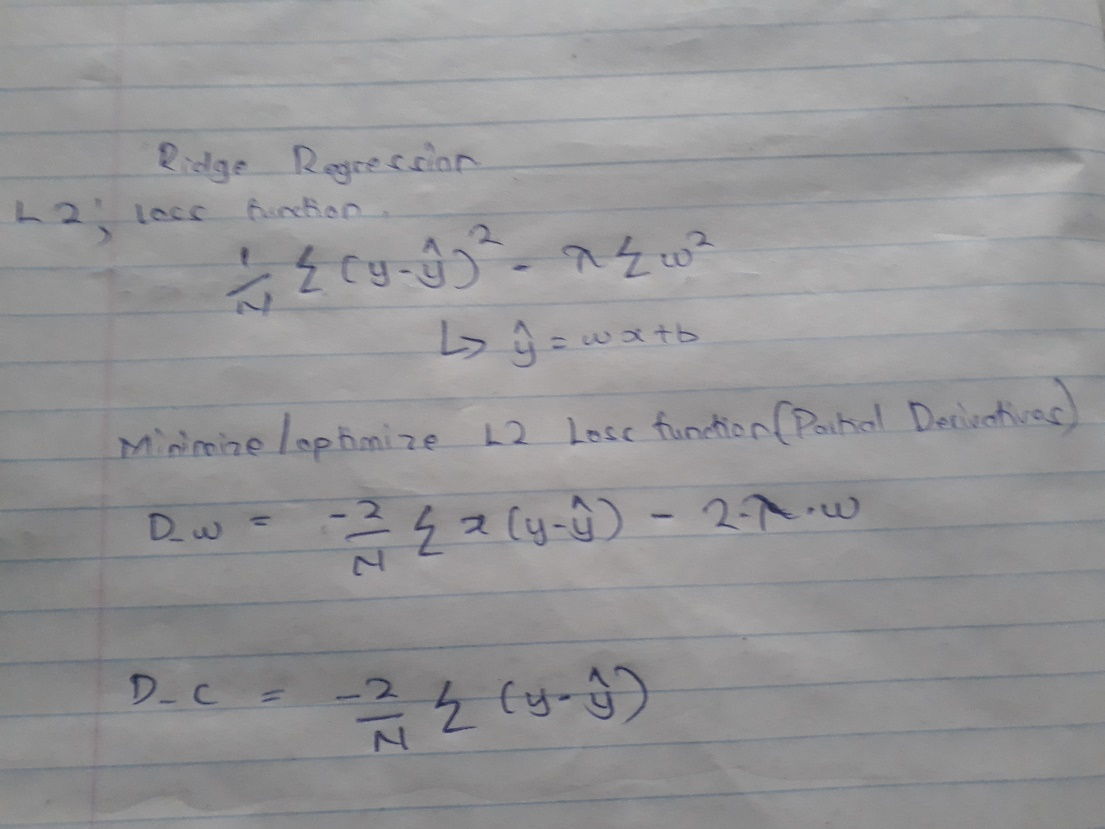 Ridge Regression
L2; loss function.
1/N Σ (y-ŷ)² - λ Σ w²
↳ ŷ = wx+b
Minimize/optimize L2 Loss function (Partial Derivatives)
D_w = -2/N Σ x(y-ŷ) - 2·λ·w
D_c = -2/N Σ (y-ŷ)